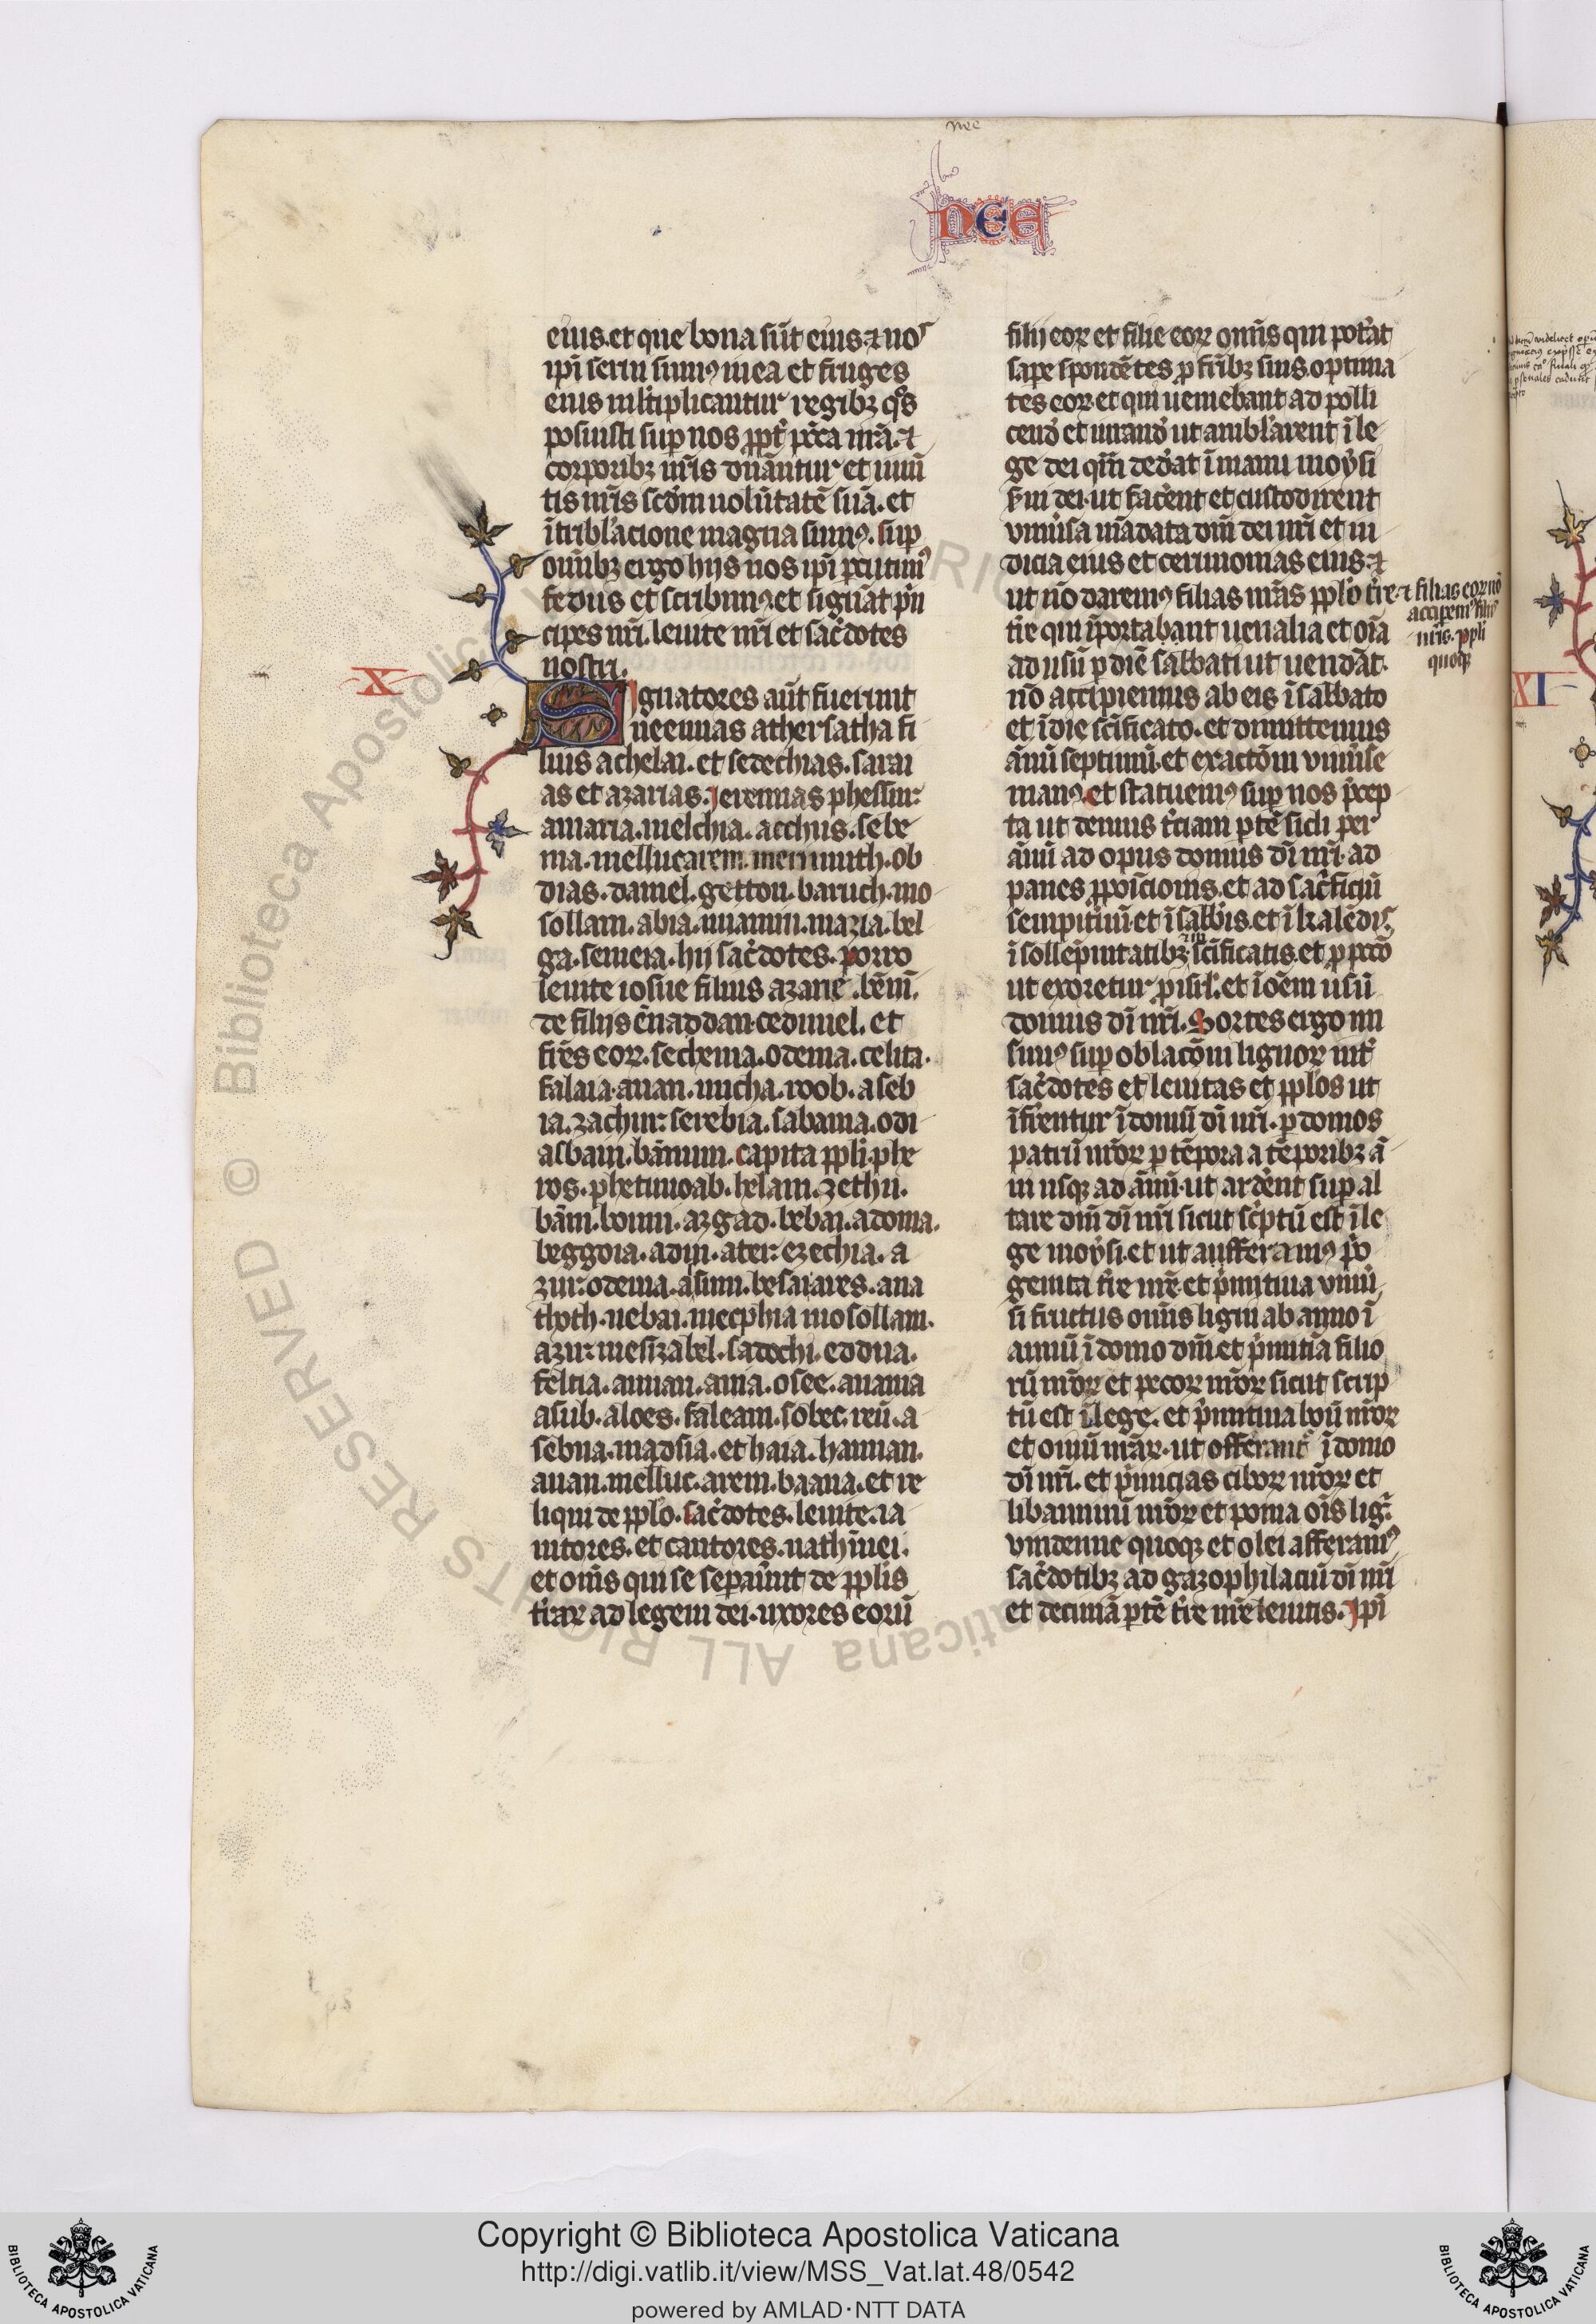 nee
nee
eius. et que bona sūt eius. ⁊ nos
ip̄i serui sumꝰ in ea et fruges
eius m̄ltiplicantur regibꝫ q̊s
posuisti sup nos ꝓpt̄ pc̄ca nr̄a. ⁊
corporibꝫ nr̄is dn̄antur et iumē
tis nr̄is scd̄m uolūtatē suā. et
ī tribl̓acione magna sumꝰ. sup
om̄ibꝫ ergo hijs nos ip̄i ꝑcutimꝰ
fedus et scribimꝰ et signāt pn̄
cipes nr̄i. leuite nr̄i et sac̓dotes
nostri.
X
Signatores aūt fuerunt
neemias athersatha fi
lius achelai. et sedechias. sarai
as et azarias. Jeremias phessur.
amaria. melchia. acchus. sebe
nia. melluc arem. merimuth. ob
dias. daniel. getton. baruch. mo
sollam. abia. miamin. mazia. bel
ga. semeia. hij sac̓dotes. porro
leuite iosue filius azarie. bēnī.
de filijs ēnaddan. cedmiel. et
fr̄es eoꝝ. sechenia. odenia. celita.
falaia. anan. micha. roob. aseb
ia. zachur. serebia. sabania. odi
as bain. bāninu. capita ppli. phe
ros. phetmoab. helam. zethu.
bāni. bonni. azgad. bebai. adonia.
beggoia. adin. ater. ezechia. a
zur. odenia. asum. besai ares. ana
thoth. nebai. mecphia mosollam.
azur. mesizabel. sadochi. eddua.
feltia. annan. ania. osee. anania
asub. aloes. faleam. sobec. reū. a
sebna. madsia. et haia. hannan.
anan. melluc. arem. baana. et re
liqui de pplo. sac̓dotes. leuite. ia
nitores. et cantores. nathinei.
et om̄s qui se separauūt de pplis
t̓raꝝ ad legem dei. uxores eorū
filij eoꝝ et filie eoꝝ om̄s qui pot̓āt
sape spondētes ꝓ fr̄ibꝫ suis. optima
tes eoꝝ et qui ueniebant ad polli
cend̄ et iurand̄ ut ambl̓arent ī le
ge dei qm̄ ded̓at ī manu moysi
s̓ui dei. ut fac̓ent et custodirent
vniu̓sa mādata dn̄i dei nr̄i et iu
dicia eius et cerimonias eius. ⁊
ut nō daremꝰ filias nr̄as pplo t̓re. ⁊ filias eoꝝ nō
accipemꝰ filijs
nr̄is. ppli
quoqꝫ
t̓re qui īportabant uenalia et oīa
ad usū ꝑ diē sabbati ut uendāt.
nō accipiemus ab eis ī sabbato
et ī die sc̄ificato. et dimittemus
ānū septimū. et exactōm vniu̓se
manꝰ. et statuemꝰ sup nos p̓cep
ta ut demus t̓ciam ꝑtē sicli per
ānū ad opus domus dī nr̄i. ad
panes ꝓpōicionis. et ad sac̓ficiū
sempit̓nū. et ī sabb̓is. et ī kalēdis.
ī sollēpnitatibꝫ ⁊ ī sc̄ificatis. et ꝓ pctō
ut exoretur ꝓ isrl̓. et ī oēm usū
domus dī nr̄i. Sortes ergo mi
simꝰ sup oblacōm lignoꝝ int̓
sac̓dotes et leuitas et pplos ut
īfr̄entur ī domū dī nr̄i. ꝑ domos
patrū nr̄oꝝ ꝑ tēpora a tēporibꝫ ā
ni usqꝫ ad ānū. ut ard̓ent sup al
tare dn̄i dī nr̄i sicut sc̓ptū est ī le
ge moysi. et ut aufferamꝰ p̓mo
genita t̓re nr̄e. et p̓mitiua vniu̓
si fructus om̄is ligni ab anno ī
annū ī domo dn̄i. et p̓mitia filio
rū nr̄oꝝ et pecoꝝ nr̄oꝝ sicut scrip
tū est ī lege. et p̓mitiua boū nr̄oꝝ
et ouiū nr̄aꝝ. ut offerant̓ ī domo
dī nr̄i. et p̓micias ciboꝝ nr̄oꝝ et
libaminū nr̄oꝝ et poma oīs ligni
vindemie quoqꝫ et olei afferamꝰ
sac̓dotibꝫ ad gazophilaciū dī nr̄i
et decimā ꝑtē t̓re nr̄e leuitis. Jp̄i
XI
© Biblioteca Apostolica Vaticana ALL RIGHTS RESERVED
Copyright © Biblioteca Apostolica Vaticana
http://digi.vatlib.it/view/MSS_Vat.lat.48/0542
powered by AMLAD·NTT DATA
BIBLIOTECA APOSTOLICA VATICANA
BIBLIOTECA APOSTOLICA VATICANA